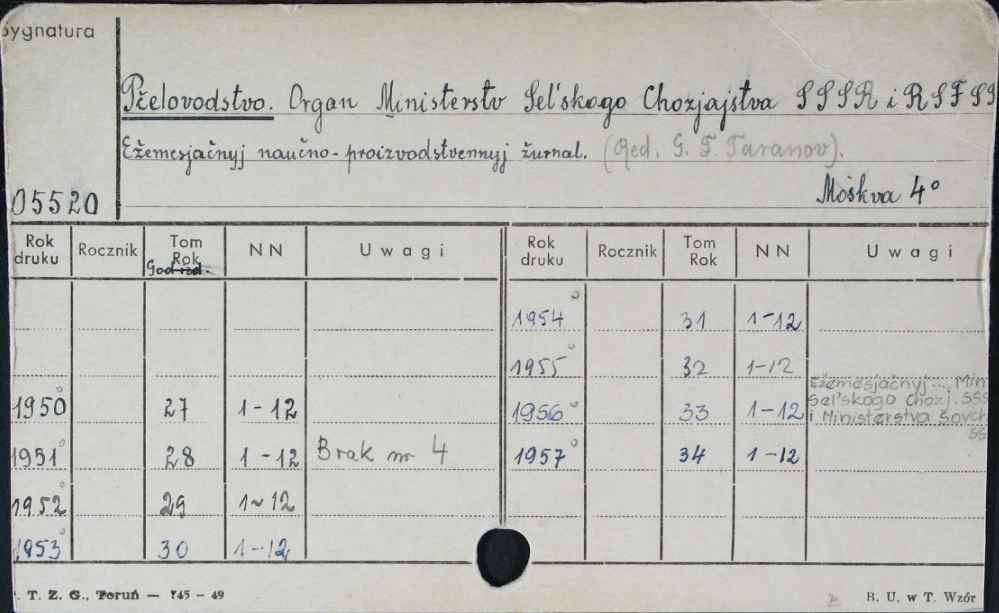 Sygnatura
Pčelovodstvo. Organ Ministerstv Sel'skogo Chozjajstva SSSR i RSFSS
Ežemesjačnyj naučno-proizvodstvennyj žurnal. (Red. G. F. Taranov).
05520
Moskva 4°
Rok druku Rocznik Tom Rok God izd. NN Uwagi Rok druku Rocznik Tom Rok NN Uwagi
1954° 31 1-12
1955° 32 1-12
1950° 27 1-12
1956° 33 1-12 Ežemesjačnyj ... Min
Sel'skogo Chozj. SSS
i Ministerstva Sovch
SS
1951° 28 1-12 Brak nr 4
1957° 34 1-12
1952° 29 1-12
1953° 30 1-12
T. Z. G., Toruń — 145 - 49
B. U. w T. Wzór